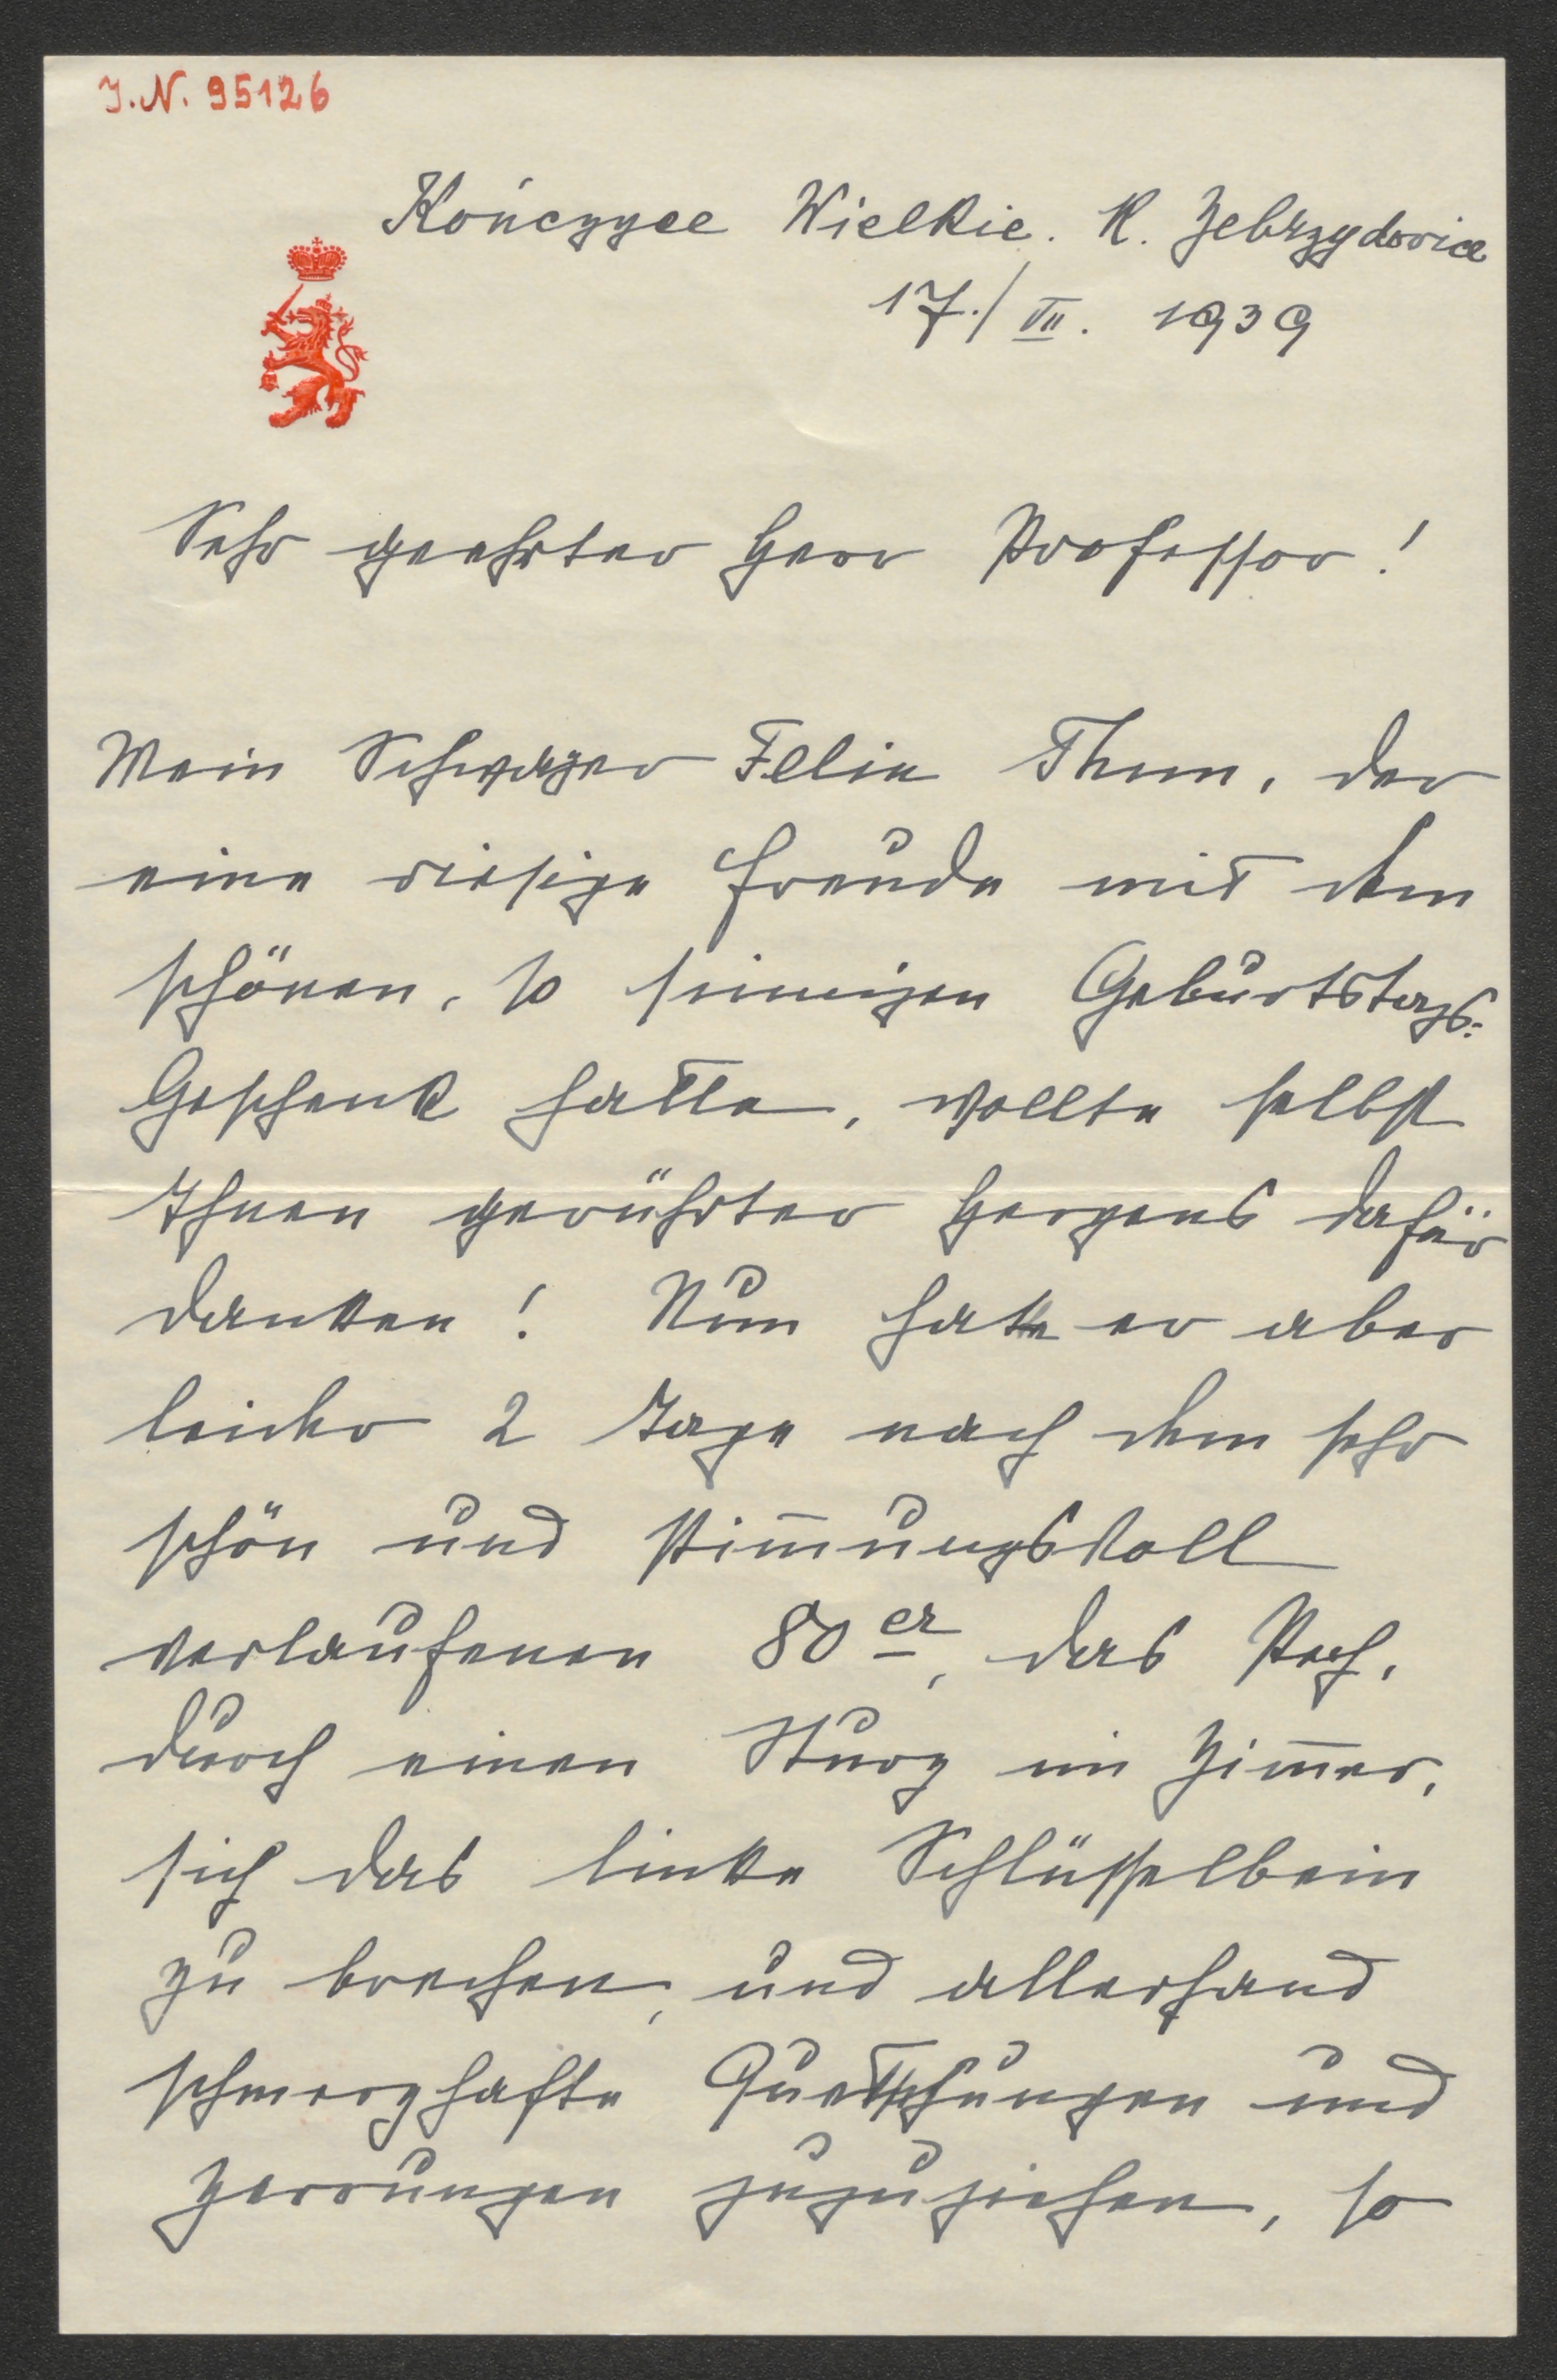 J.N. 95126
Kończyce Wielkie. K. Zebrzydovice
17./VII. 1939
Sehr geehrter Herr Professor!
Mein Schwager Felix Thun, der
eine riesige Freude mit dem
schönen, so sinnigen Geburtstags-
Geschenk hatte, wollte selbst
Ihnen gerührten Herzens dafür
danken! Nun hatte er aber
leider 2 Tage nach dem sehr
schön und stim̅ungsvoll
verlaufenen 80er, das Pech,
durch einen Sturz im Zim̅er,
sich das linke Schlüsselbein
zu brechen, und allerhand
schmerzhafte Quetschungen und
Zerrungen zuzuziehen, so